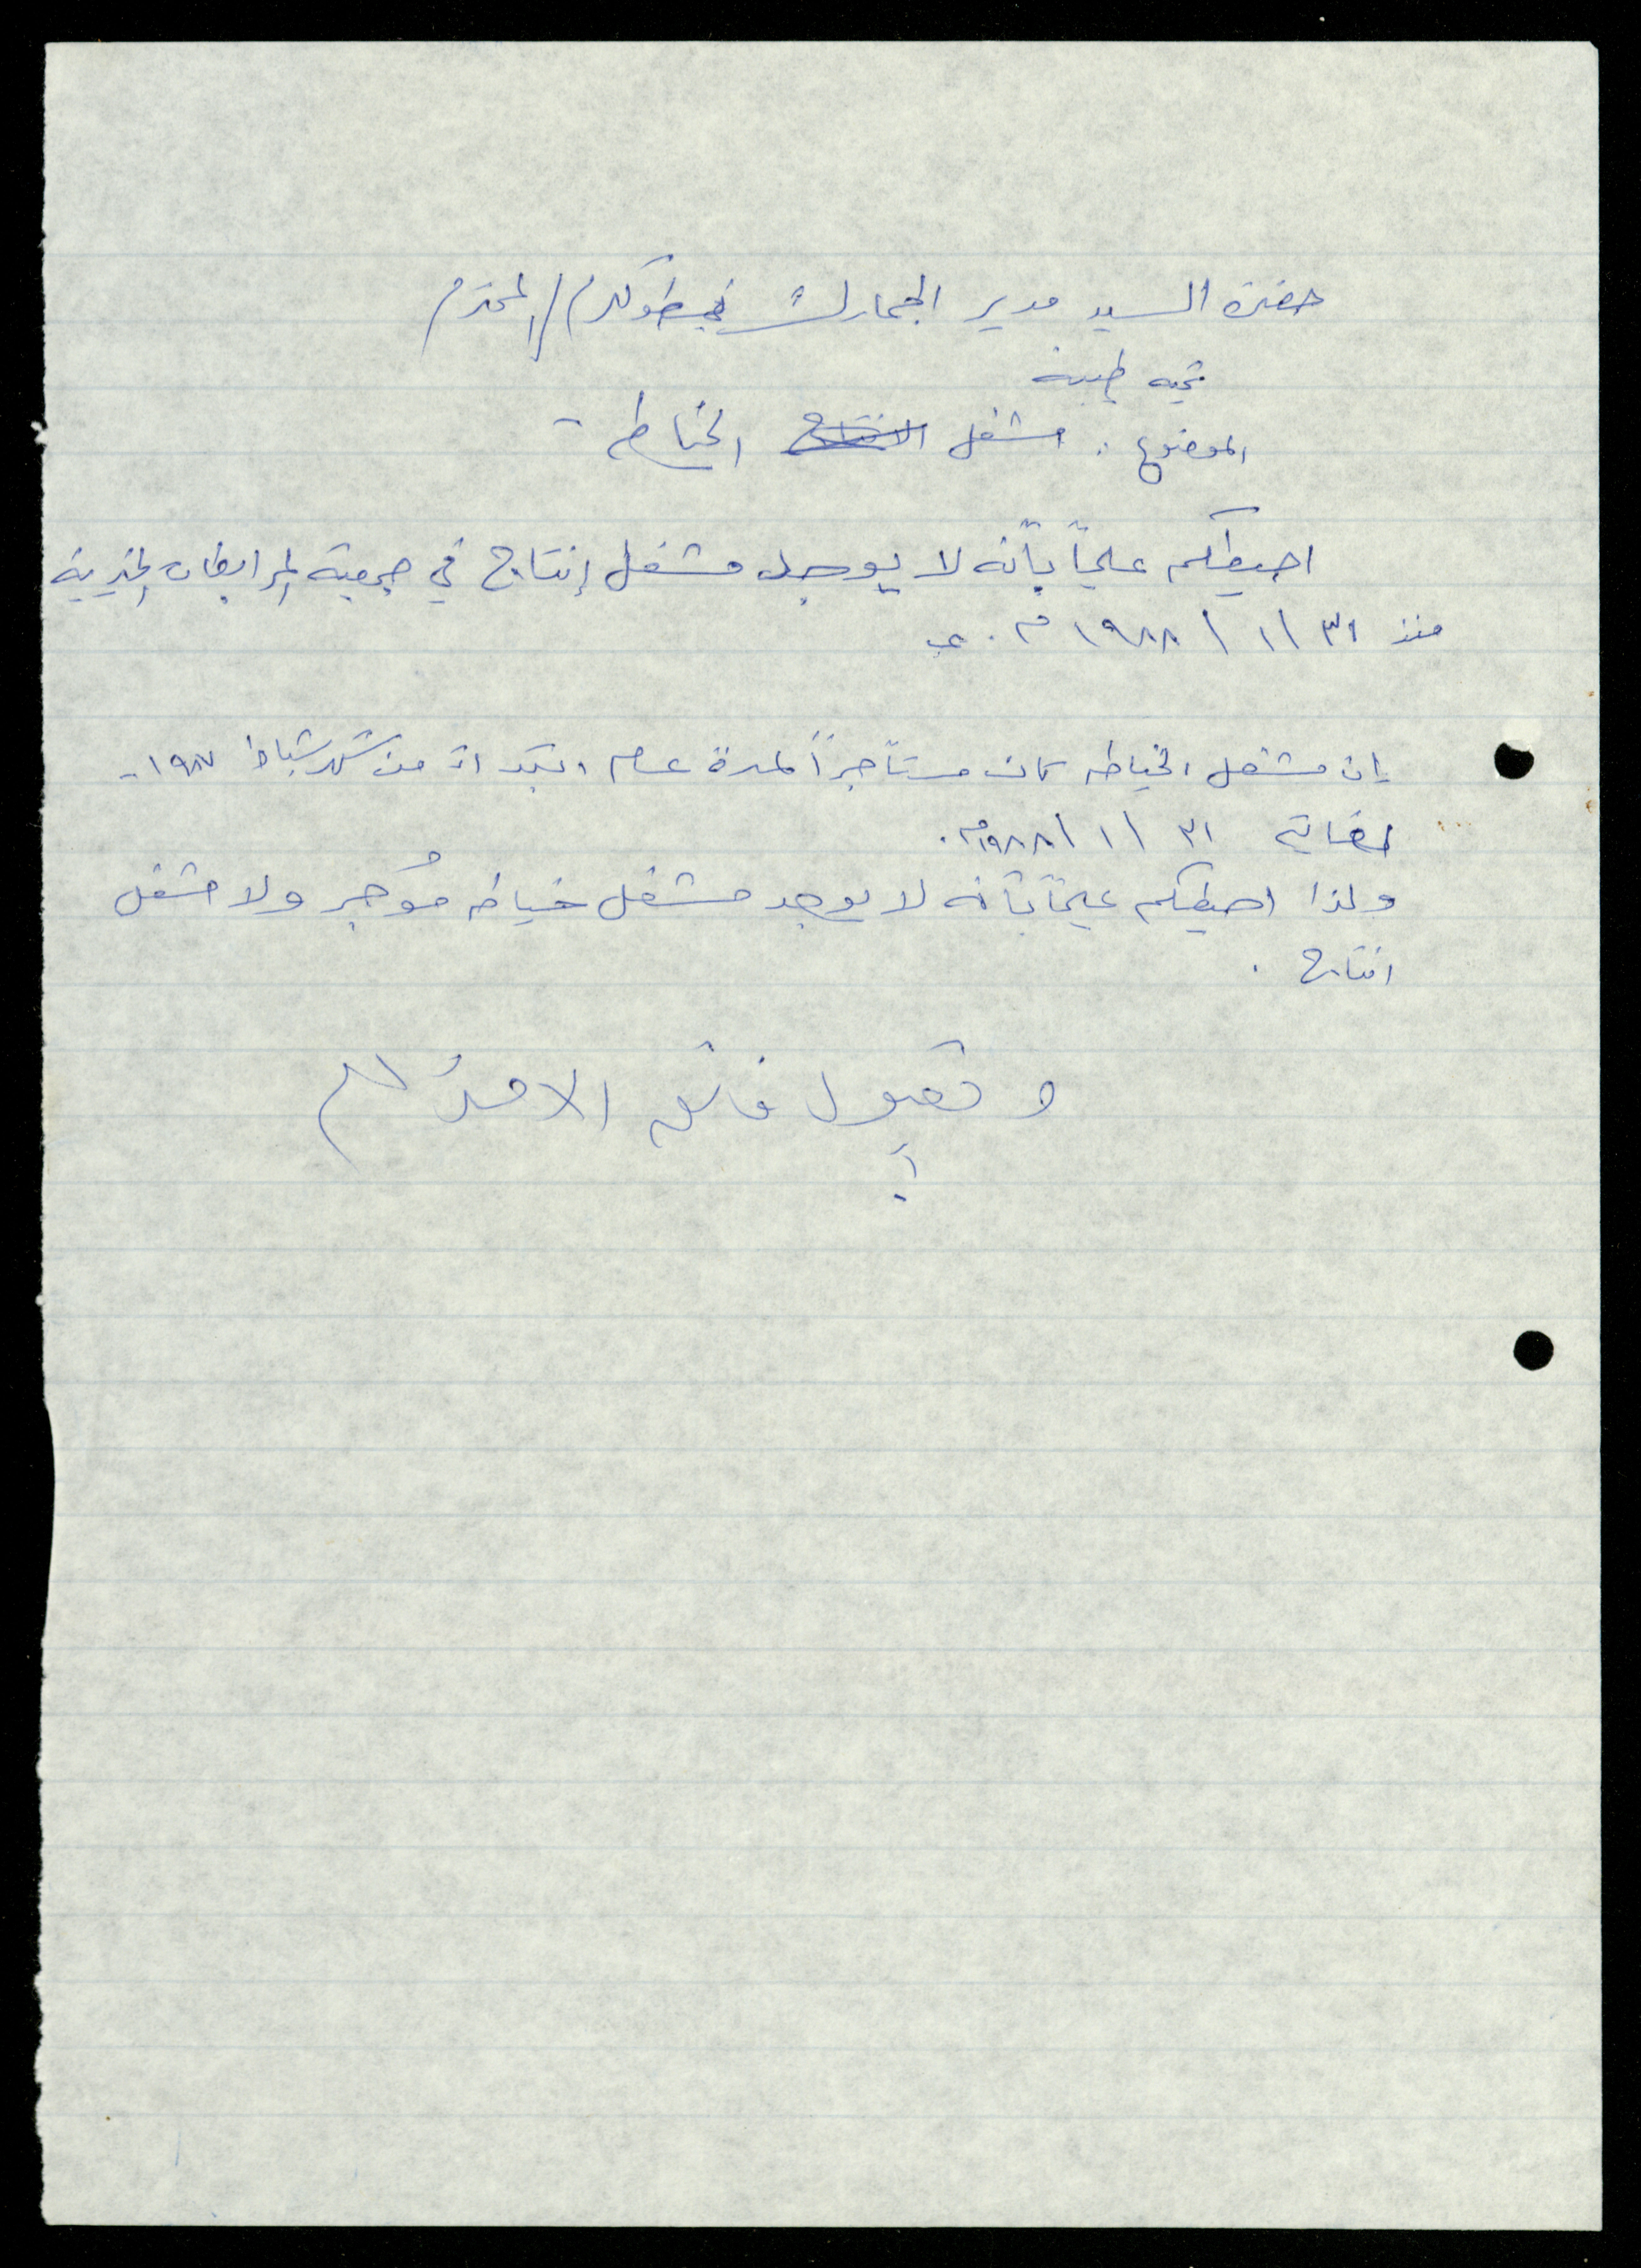 حضرة السيد مدير الجمارك في طولكرم / المحترم
تحيه طيبه
الموضوع : مشغل الانتاج الخياطه -
احيطكم علماً بأنه لا يوجد مشغل إنتاج في جمعية المرابطات الخيرية
منذ ٣١ / ١ / ١٩٨٨ م .
إن مشغل الخياطه كان مستأجراً لمدة عام ابتداء من شهر شباط ١٩٨٧ -
لغاية ٣١ / ١ / ١٩٨٨م .
ولذا احيطكم علماً بأنه لا يوجد مشغل خياطه مؤجر ولا مشغل
انتاج .
و تقبول فائق الاحترام